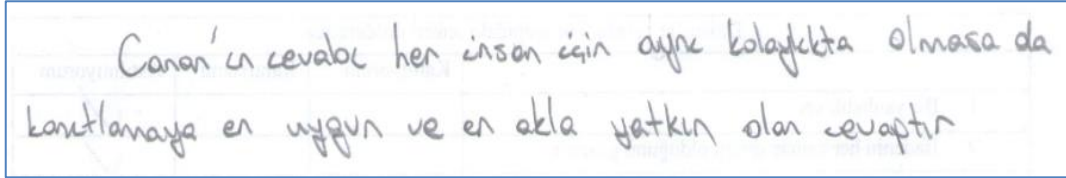 Canan'ın cevabı her insan için aynı kolaylıkta olmasa da
kanıtlamaya en uygun ve en akla yatkın olan cevaptır